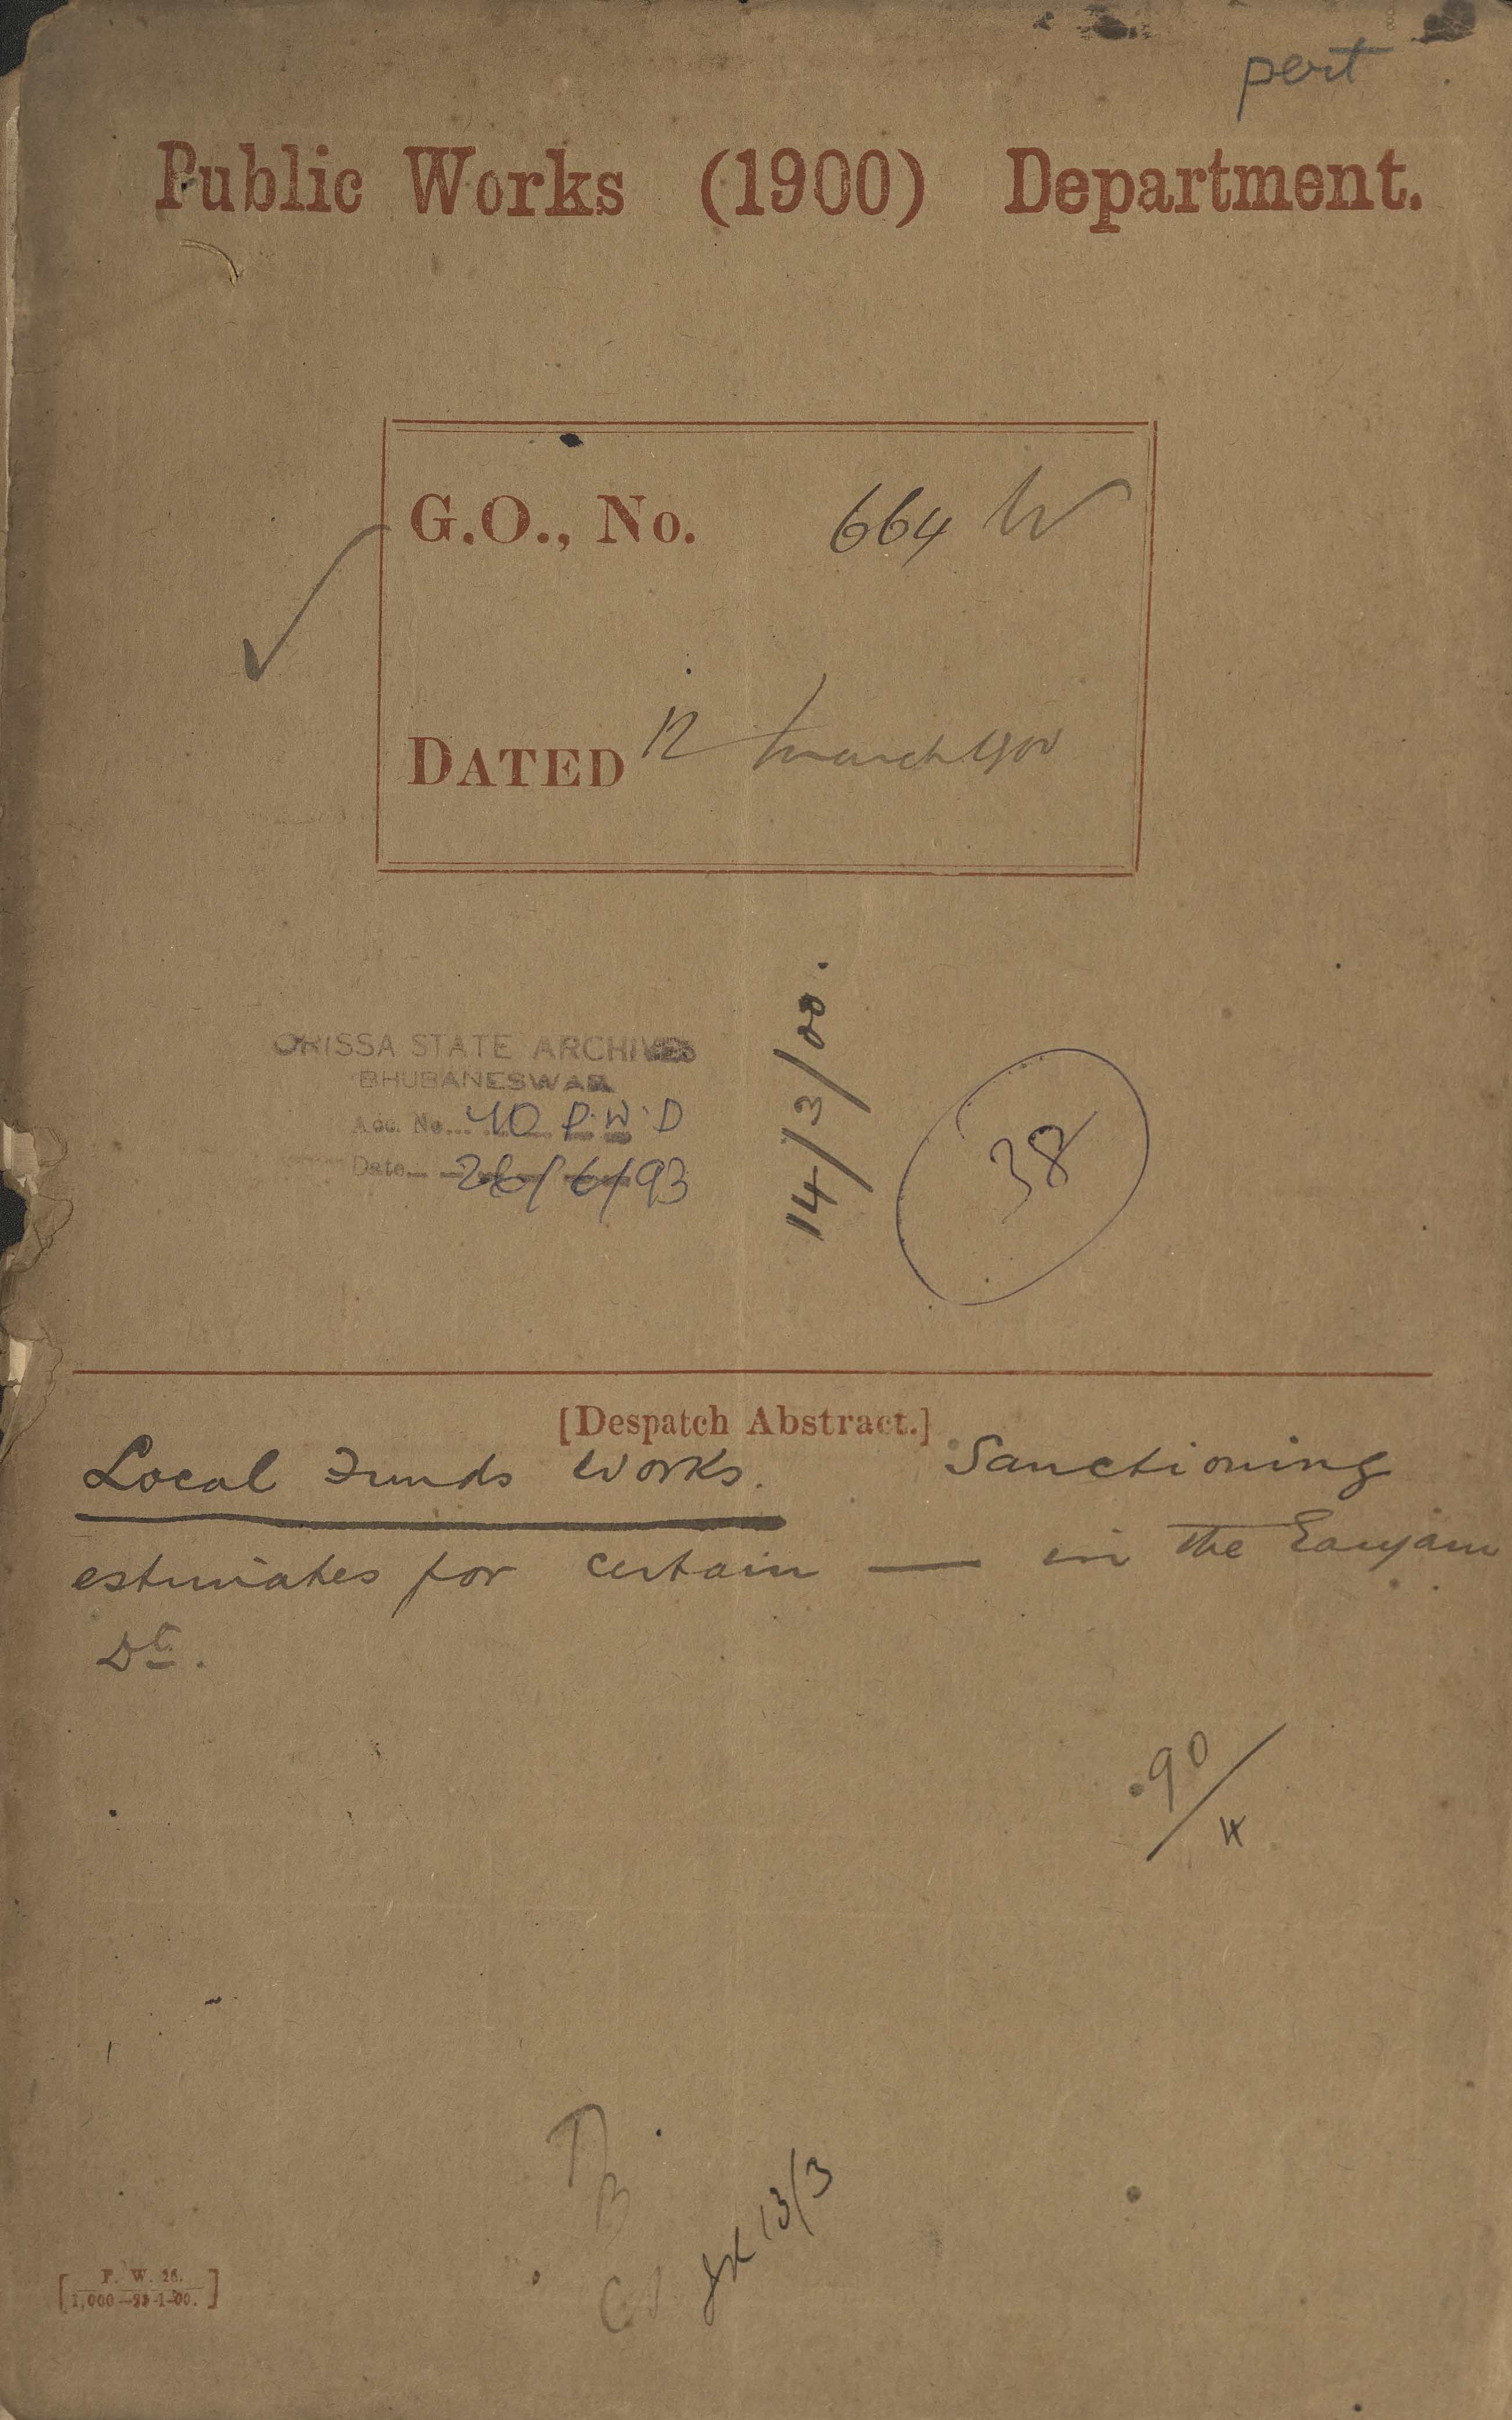 pert
Public Works (1900) Department.
G.O., No. 664 W
DATED 12 March 1900
ORISSA STATE ARCHIVES
BHUBANESWAR
Acc. No... 40 P.W.D
Date 26/6/93
14/3/00.
38
[Despatch Abstract.]
Local Funds Works. Sanctioning
estimates for certain — in the Ganjam
Dt.
90/
13/3
[P. W. 26.
1,000— -1-00.]